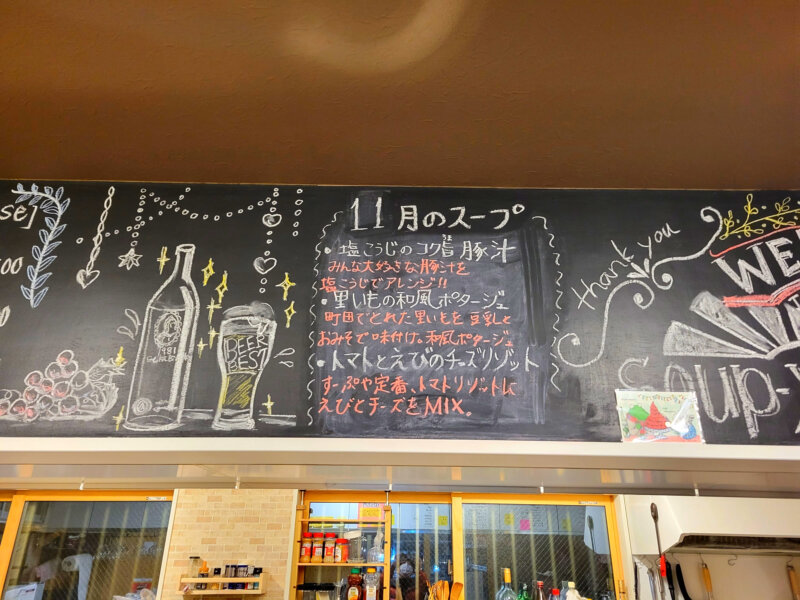 sej
00
BEER
BEST
11月のスープ
・塩こうじのコク旨豚汁
みんな大好きな豚汁を
塩こうじでアレンジ!!
・里いもの和風ポタージュ
町田でとれた里いもを豆乳と
おみそで味付け。和風ポタージュ
・トマトとえびのチーズリゾット
すーぷや定番、トマトリゾットに
えびとチーズをMIX。
thank you
WE
soup-